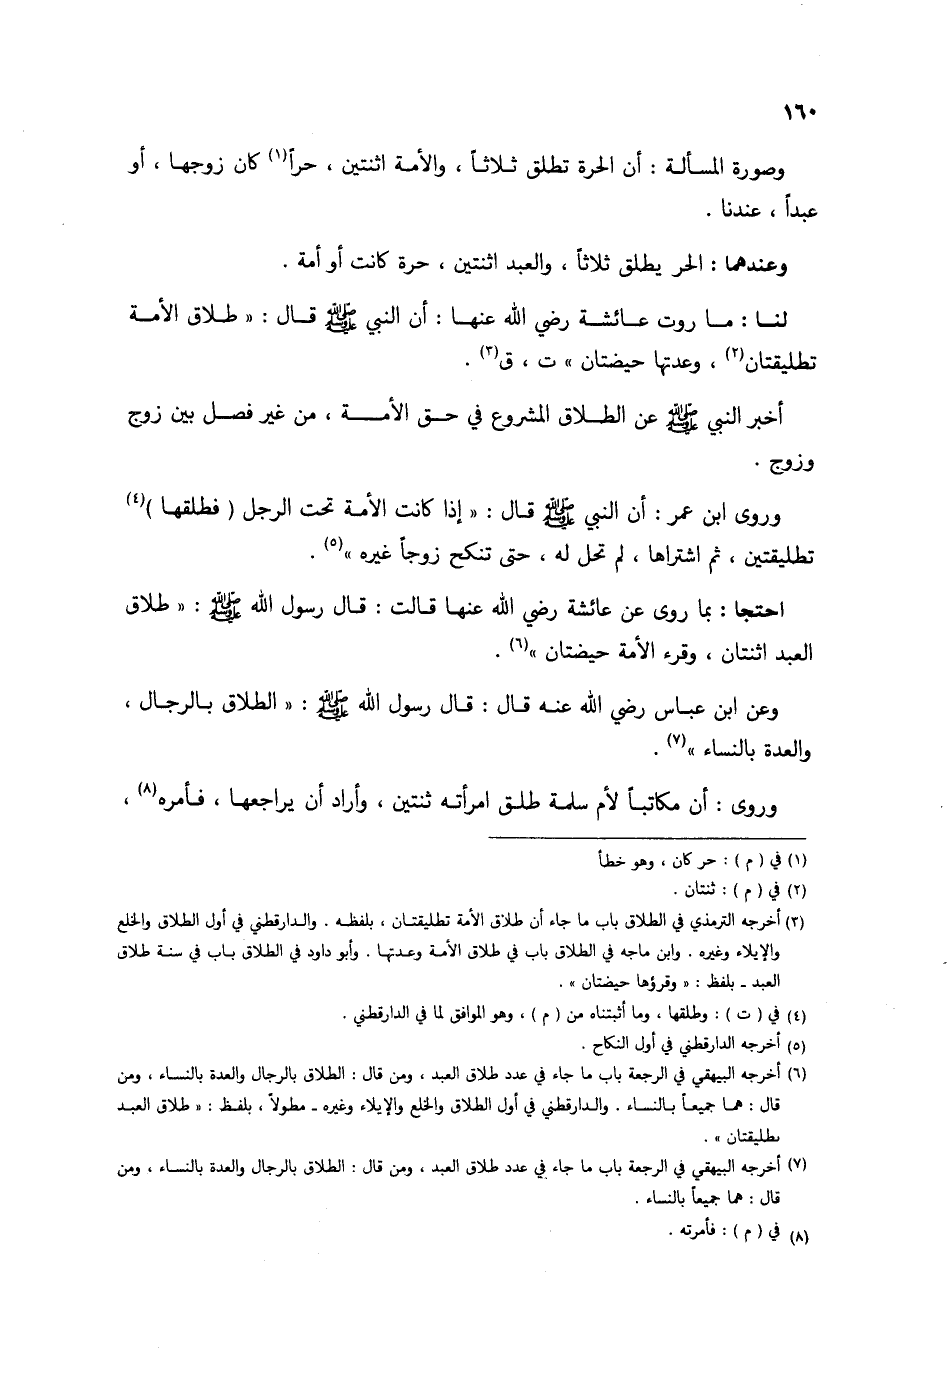 ١٦٠
وصورة المسألة : أن الحرة تطلق ثلاثاً ، والأمة اثنتين ، حراً(١) كان زوجها ، أو
عبداً ، عندنا .
وعندهما : الحر يطلق ثلاثاً ، والعبد اثنتين ، حرة كانت أو أمة .
لنا : ما روت عائشة رضي الله عنها : أن النبي ﷺ قال : « طلاق الأمة
تطليقتان(٢) ، وعدتها حيضتان » ت ، ق(٣) .
أخبر النبي ﷺ عن الطلاق المشروع في حق الأمة ، من غير فصل بين زوج
وزوج .
وروى ابن عمر : أن النبي ﷺ قال : « إذا كانت الأمة تحت الرجل ( فطلقها )(٤)
تطليقتين ، ثم اشتراها ، لم تحل له ، حتى تنكح زوجاً غيره »(٥) .
احتجا : بما روى عن عائشة رضي الله عنها قالت : قال رسول الله ﷺ : « طلاق
العبد اثنتان ، وقرء الأمة حيضتان »(٦) .
وعن ابن عباس رضي الله عنه قال : قال رسول الله ﷺ : « الطلاق بالرجال ،
والعدة بالنساء »(٧) .
وروى : أن مكاتباً لأم سلمة طلق امرأته ثنتين ، وأراد أن يراجعها ، فأمره(٨) ،
(١) في ( م ) : حر كان ، وهو خطأ
(٢) في ( م ) : ثنتان .
(٣) أخرجه الترمذي في الطلاق باب ما جاء أن طلاق الأمة تطليقتان ، بلفظه . والدارقطني في أول الطلاق والخلع
والإيلاء وغيره . وابن ماجه في الطلاق باب في طلاق الأمة وعدتها . وأبو داود في الطلاق باب في سنة طلاق
العبد ـ بلفظ : « وقرؤها حيضتان » .
(٤) في ( ت ) : وطلقها ، وما أثبتناه من ( م ) ، وهو الموافق لما في الدارقطني .
(٥) أخرجه الدارقطني في أول النكاح .
(٦) أخرجه البيهقي في الرجعة باب ما جاء في عدد طلاق العبد ، ومن قال : الطلاق بالرجال والعدة بالنساء ، ومن
قال : هما جميعاً بالنساء . والدارقطني في أول الطلاق والخلع والإيلاء وغيره ـ مطولاً ، بلفظ : « طلاق العبد
تطليقتان » .
(٧) أخرجه البيهقي في الرجعة باب ما جاء في عدد طلاق العبد ، ومن قال : الطلاق بالرجال والعدة بالنساء ، ومن
قال : هما جميعاً بالنساء .
(٨) في ( م ) : فأمرته .